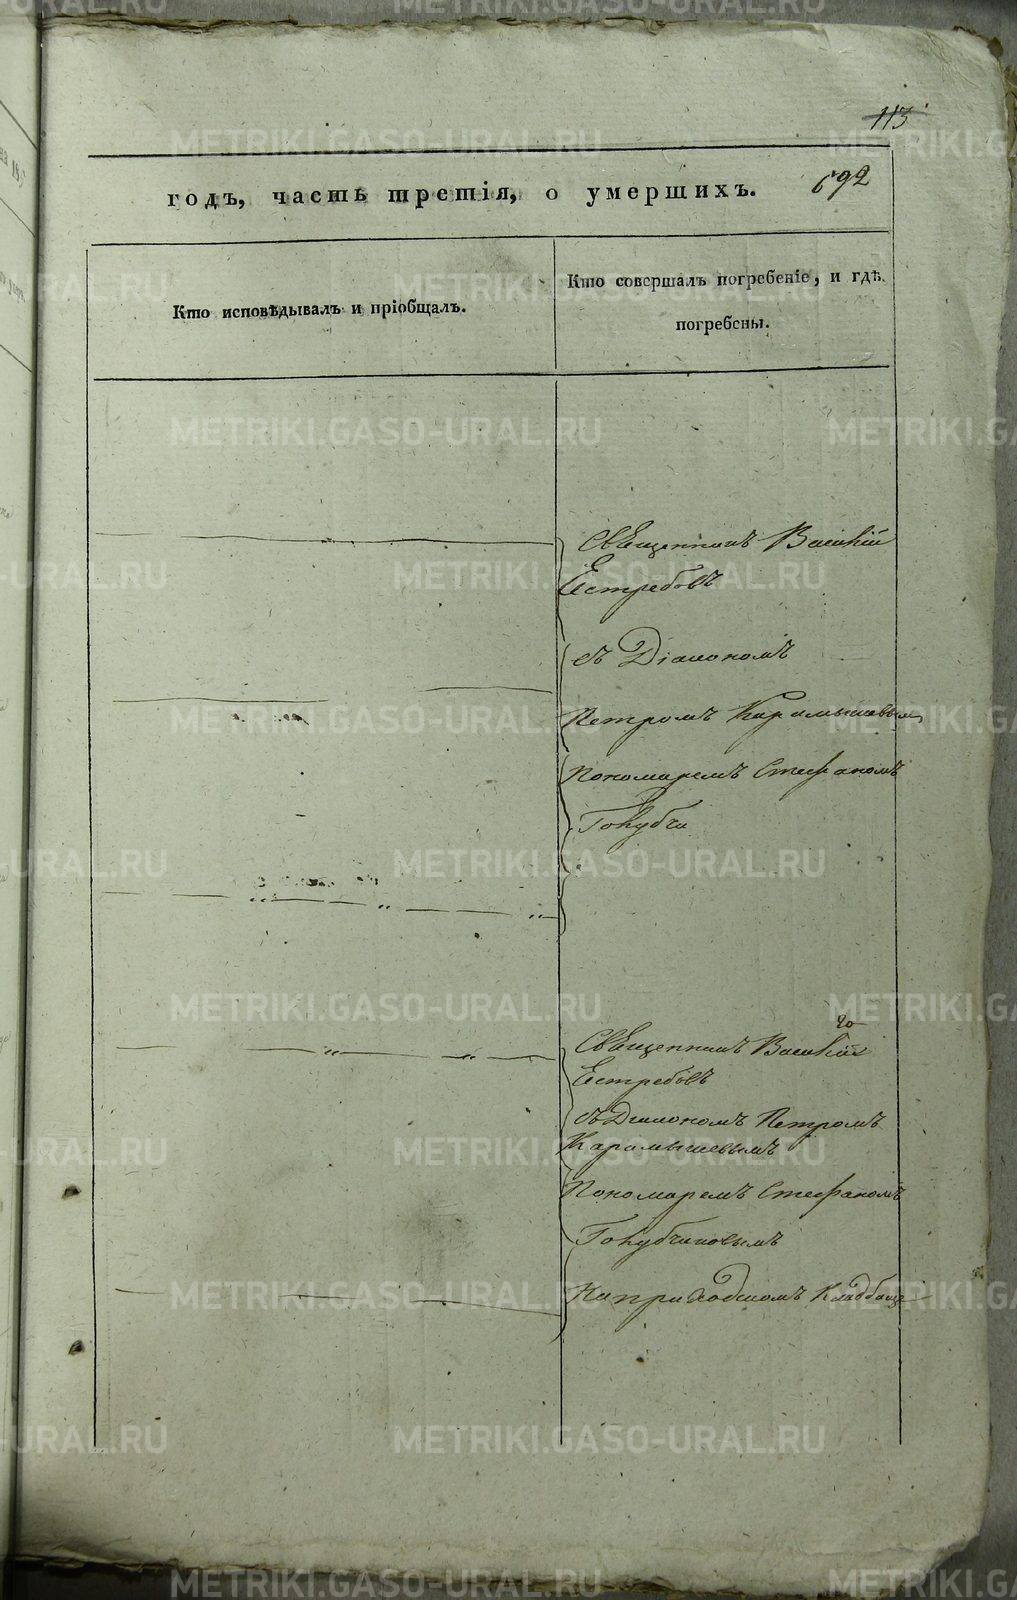 113
692
годъ, часть третія, о умершихъ.
Кто исповѣдывалъ и пріобщалъ.
Кто совершалъ погребеніе, и гдѣ
погребены.
Священникъ Василій
Ястребовъ
съ Діакономъ
Петромъ Карамышевым
Пономаремъ Стефаномъ
Голубчи
Священникъ Василій
Ястребовъ
съ Диакономъ Петромъ
Карамышевымъ
Пономаремъ Стефаномъ
Голубчиковымъ
На приходскомъ Кладбище
METRIKI.GASO-URAL.RU